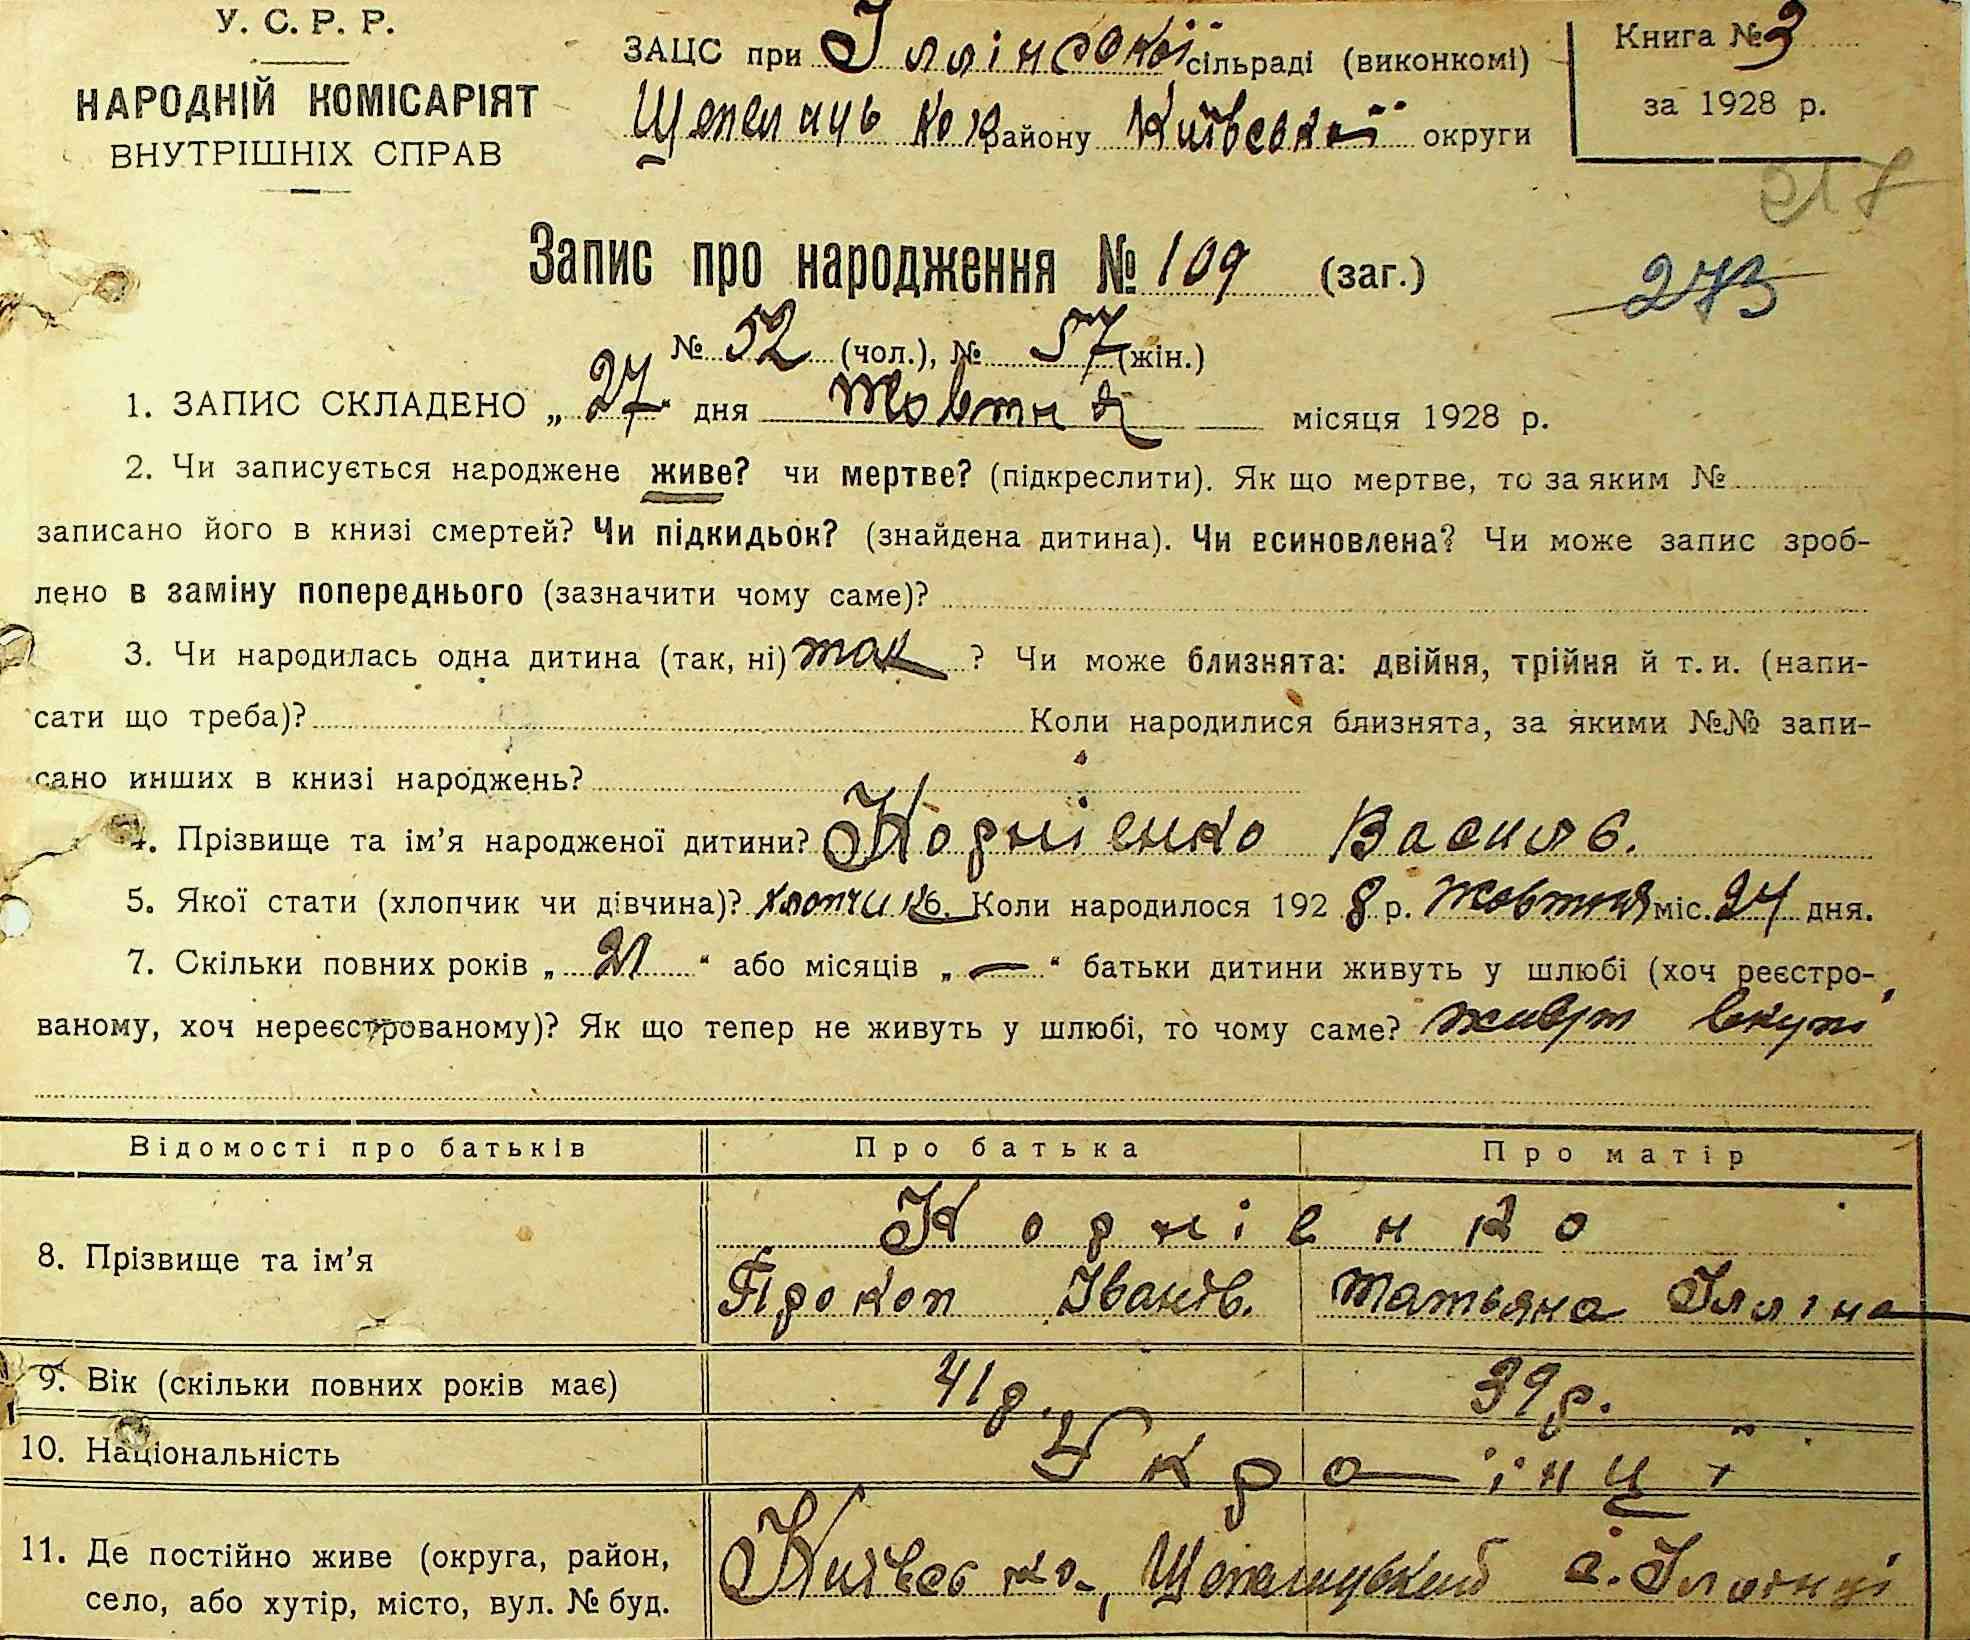 У. С. Р. Р.
НАРОДНІЙ КОМІСАРІЯТ
ВНУТРІШНІХ СПРАВ
ЗАЦС при Іллінській сільраді (виконкомі)
району Київської округи
Книга № 3
за 1928 р.
217
273
Запис про народження № 109 (заг.)
№ 52 (чол.), № 57 (жін.)
1. ЗАПИС СКЛАДЕНО „27“ дня Жовтня місяця 1928 р.
2. Чи записується народжене живе? чи мертве? (підкреслити). Як що мертве, то за яким №
записано його в книзі смертей? Чи підкидьок? (знайдена дитина). Чи всиновлена? Чи може запис зроб-
лено в заміну попереднього (зазначити чому саме)?
3. Чи народилась одна дитина (так, ні) так ? Чи може близнята: двійня, трійня й т. и. (напи-
сати що треба)? Коли народилися близнята, за якими №№ запи-
сано инших в книзі народжень?
4. Прізвище та ім’я народженої дитини? Корнієнко Василь.
5. Якої стати (хлопчик чи дівчина)? хлопчик. Коли народилося 1928 р. жовтня міс. 24 дня.
7. Скільки повних років „21“ або місяців „—“ батьки дитини живуть у шлюбі (хоч реєстро-
ваному, хоч нереєстрованому)? Як що тепер не живуть у шлюбі, то чому саме? живут вкупі
Відомості про батьків Про батька Про матір
8. Прізвище та ім’я Корнієнко
Прокоп Іванів. Татьяна Ілліна
9. Вік (скільки повних років має) 41 р. 39 р.
10. Національність Українці
11. Де постійно живе (округа, район,
село, або хутір, місто, вул. № буд.
с. Іллінці